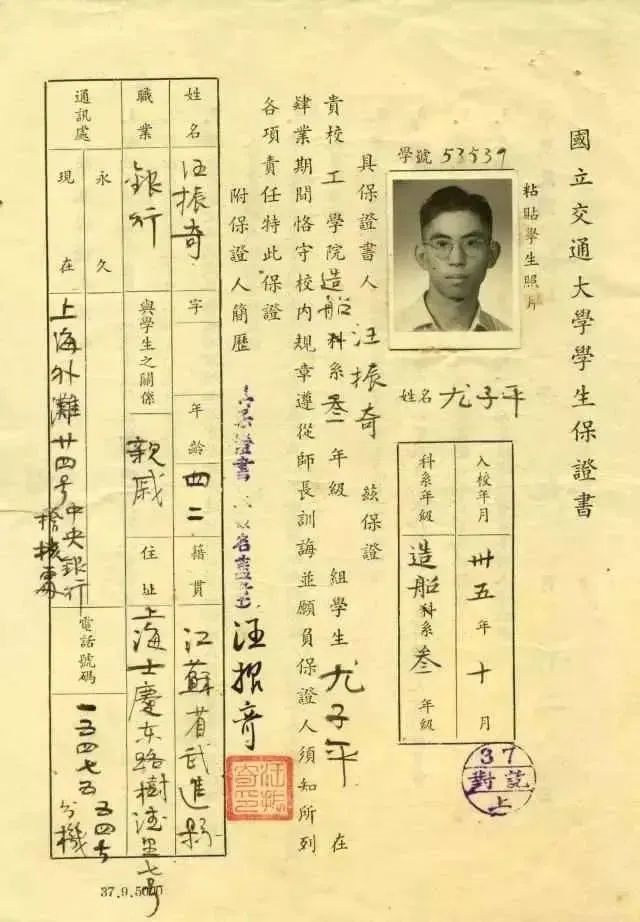 國立交通大學學生保證書
粘貼學生照片
學號 53539
姓名 尤子平
入校年月 卅五年十月
科系年級 造船科系叁年級
37
對訖
上
具保證書人 汪振奇 茲保證
貴校工學院造船科系叁年級 組學生尤子平在
肄業期間恪守校內規章遵從師長訓誨並願負保證人須知所列
各項責任特此保證
附保證人簡歷
具保證書人 汪振奇
姓名 汪振奇 字 年齡 四二 籍貫 江蘇省武進縣
職業 銀行 與學生之關係 親戚 住址 上海 慶東路樹德里七号
通訊處 永久
現在 上海外灘廿四号中央銀行 電話號碼 一五四七五 五四七 分機
37.9.5000